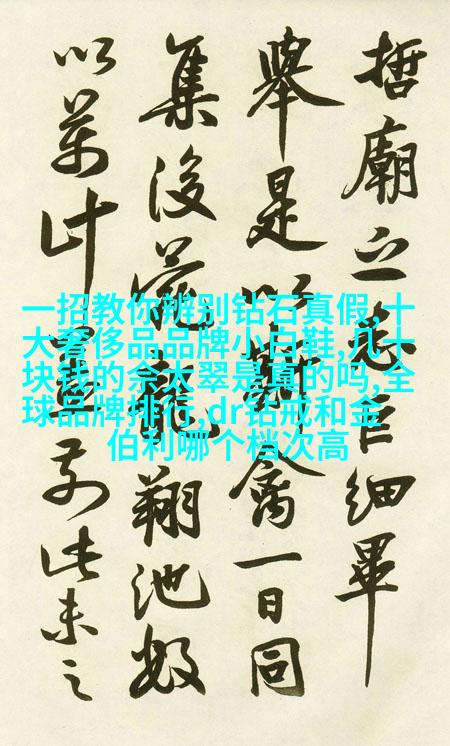 哲廟之志巨細畢
舉是以禽一日同
集後苑龍翔池數
以萬計前此未之
一招教你辨别钻石真假,十
大奢侈品品牌小白鞋,几十
块钱的佘太翠是真的吗,全
球品牌排行,dr钻戒和金
伯利哪个档次高